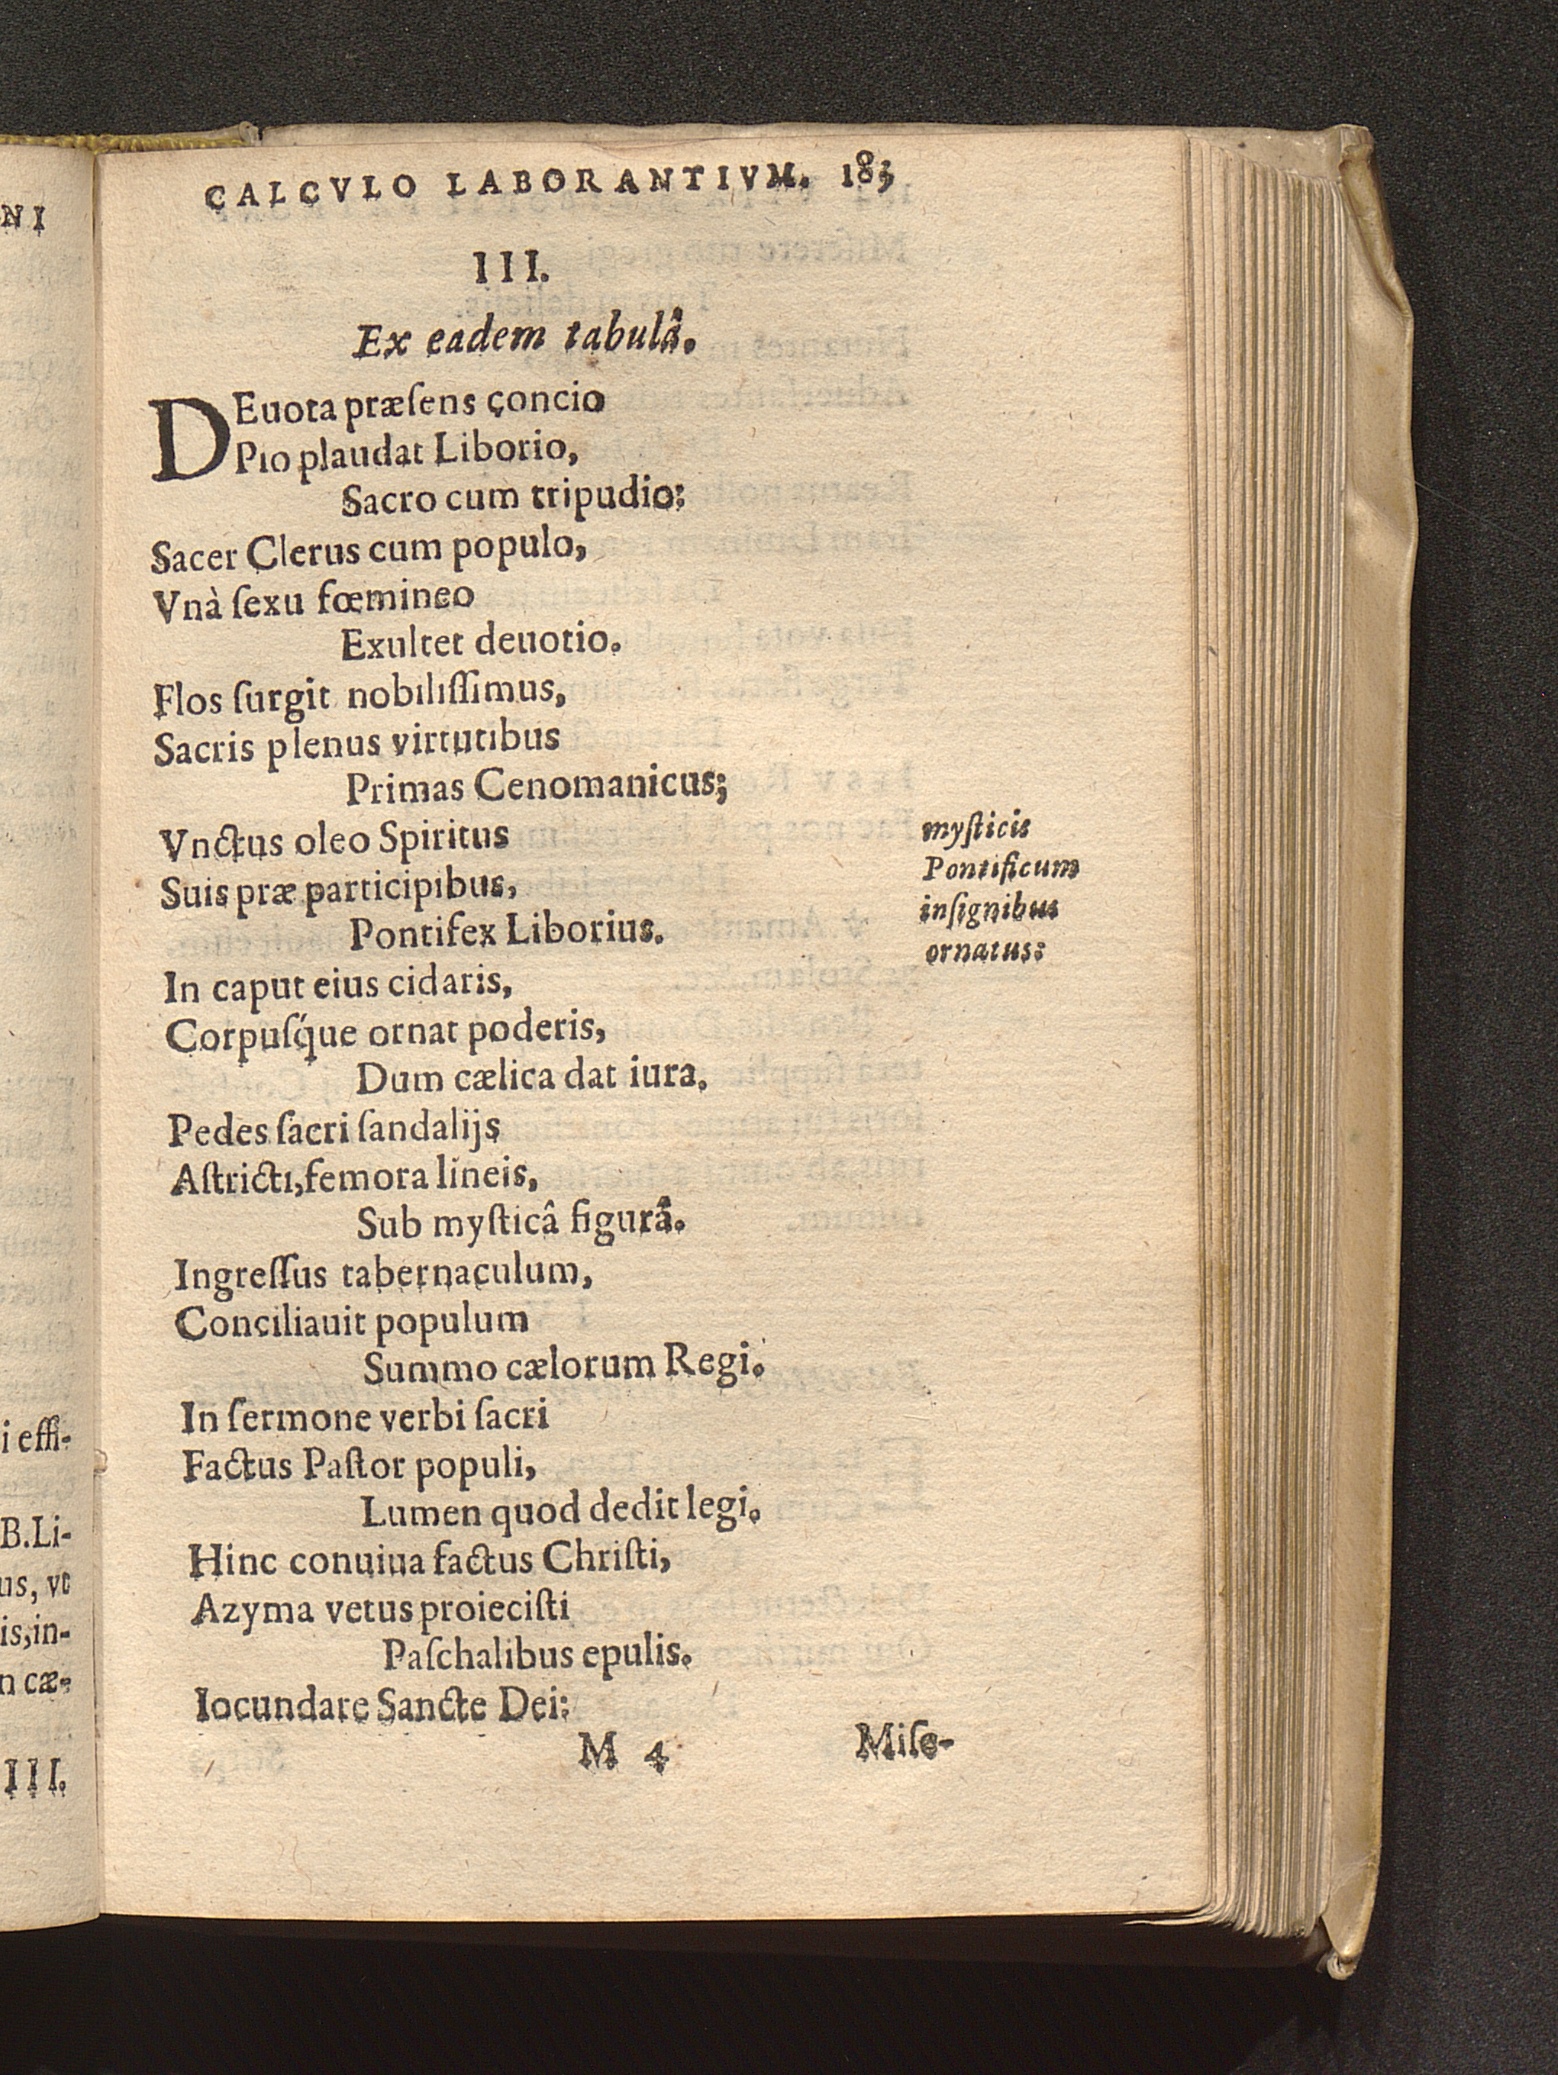 NI
i effi-
B.Li-
us, vt
is,in-
n cæ-
III.
CALCVLO LABORANTIVM. 183
III.
Ex eadem tabulâ.
DEuota præſens concio
Pio plaudat Liborio,
Sacro cum tripudio;
Sacer Clerus cum populo,
Vnà ſexu fœmineo
Exultet deuotio.
Flos ſurgit nobiliſſimus,
Sacris plenus virtutibus
Primas Cenomanicus;
Vnctus oleo Spiritus
Suis præ participibus,
Pontifex Liborius.
mysticis
Pontificum
inſignibus
ornatus:
In caput eius cidaris,
Corpuſq́ue ornat poderis,
Dum cælica dat iura.
Pedes ſacri ſandalijs
Aſtricti, femora lineis,
Sub myſticâ figurâ.
Ingreſſus tabernaculum,
Conciliauit populum
Summo cælorum Regi.
In ſermone verbi ſacri
Factus Paſtor populi,
Lumen quod dedit legi.
Hinc conuiua factus Chriſti,
Azyma vetus proieciſti
Paſchalibus epulis.
Iocundare Sancte Dei:
M 4 Miſe-